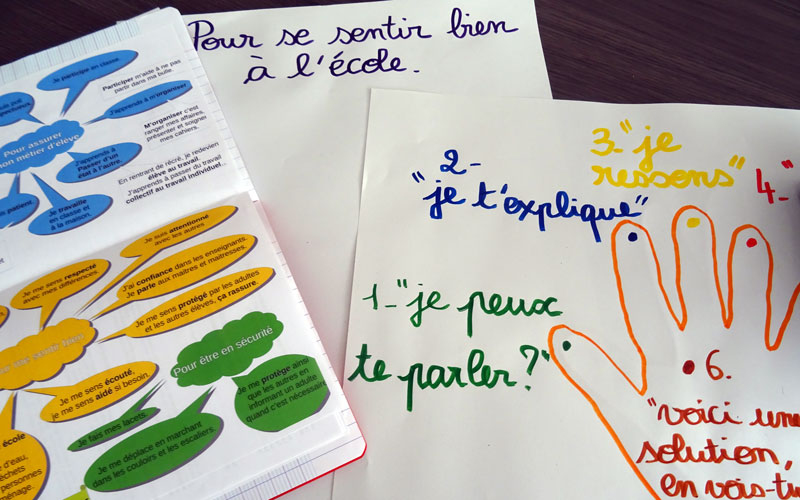 Pour se sentir bien
à l'école.
Je participe en classe.
Participer m'aide à ne pas
partir dans ma bulle.
J'apprends à m'organiser
M'organiser c'est
ranger mes affaires,
présenter et soigner
mes cahiers.
Pour assurer
mon métier d'élève
J'apprends à
Passer d'un
état à l'autre.
En rentrant de récré, je redevien
élève au travail.
J'apprends à passer du travail
collectif au travail individuel...
patient.
Je travaille
en classe et
à la maison.
Je suis attentionné
avec les autres
Je me sens respecté
avec mes différences.
J'ai confiance dans les enseignants.
Je parle aux maitres et maitresses.
Je me sens protégé par les adultes
et les autres élèves, ça rassure.
Je me sens écouté,
je me sens aidé si besoin.
Pour être en sécurité
Je me protège ainsi
que les autres en
informant un adulte
quand c'est nécessaire
Je fais mes lacets.
Je me déplace en marchant
dans les couloirs et les escaliers.
école
d'eau,
personnes
1-"je peux
te parler?"
2-
"je t'explique"
3-"je
ressens"
4-"
6.
"voici une
solution,
en vois-tu